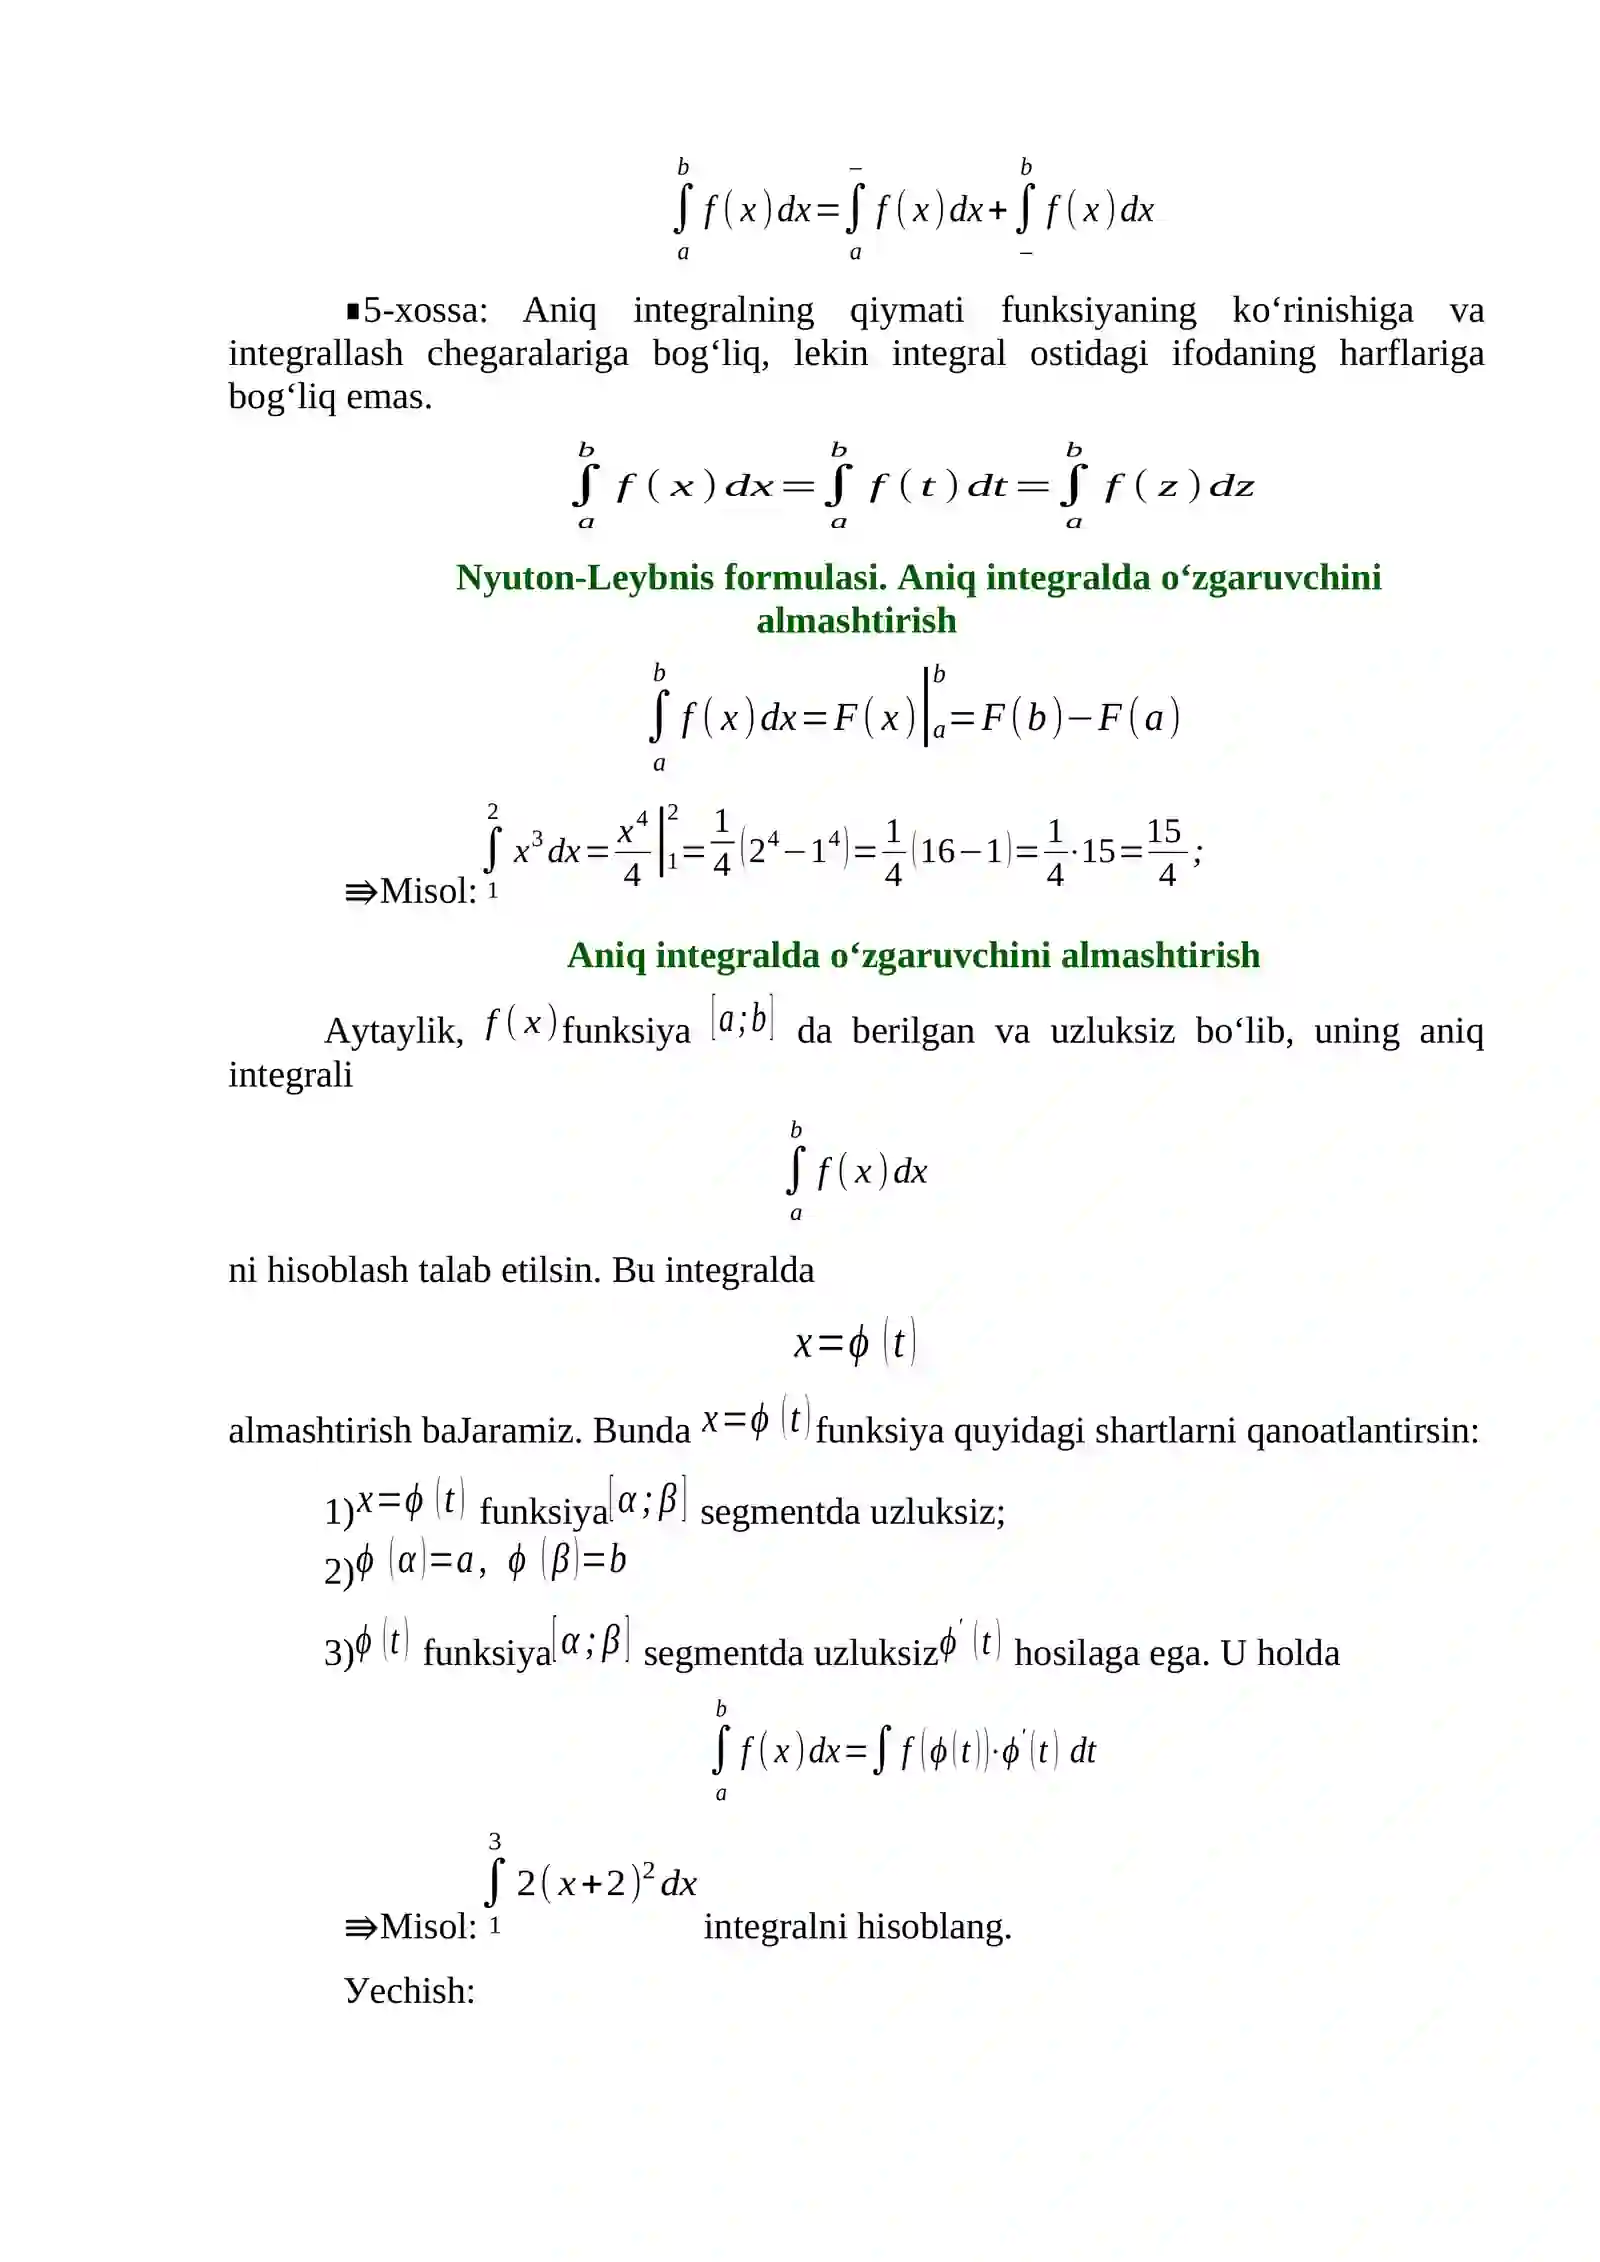 ∫_a^b f(x)dx=∫_a^– f(x)dx+∫_–^b f(x)dx
∎5-xossa: Aniq integralning qiymati funksiyaning ko‘rinishiga va
integrallash chegaralariga bog‘liq, lekin integral ostidagi ifodaning harflariga
bog‘liq emas.
∫_a^b f(x)dx=∫_a^b f(t)dt=∫_a^b f(z)dz
Nyuton-Leybnis formulasi. Aniq integralda o‘zgaruvchini
almashtirish
∫_a^b f(x)dx=F(x)|_a^b=F(b)−F(a)
⇛Misol: ∫_1^2 x^3 dx=x^4/4|_1^2=1/4(2^4−1^4)=1/4(16−1)=1/4·15=15/4;
Aniq integralda o‘zgaruvchini almashtirish
Aytaylik, f(x)funksiya [a;b] da berilgan va uzluksiz bo‘lib, uning aniq
integrali
∫_a^b f(x)dx
ni hisoblash talab etilsin. Bu integralda
x=ϕ (t)
almashtirish baJaramiz. Bunda x=ϕ (t)funksiya quyidagi shartlarni qanoatlantirsin:
1)x=ϕ (t) funksiya[α;β] segmentda uzluksiz;
2)ϕ (α)=a, ϕ (β)=b
3)ϕ (t) funksiya[α;β] segmentda uzluksizϕ′ (t) hosilaga ega. U holda
∫_a^b f(x)dx=∫f(ϕ(t))·ϕ′(t) dt
⇛Misol: ∫_1^3 2(x+2)^2 dx integralni hisoblang.
Уechish: